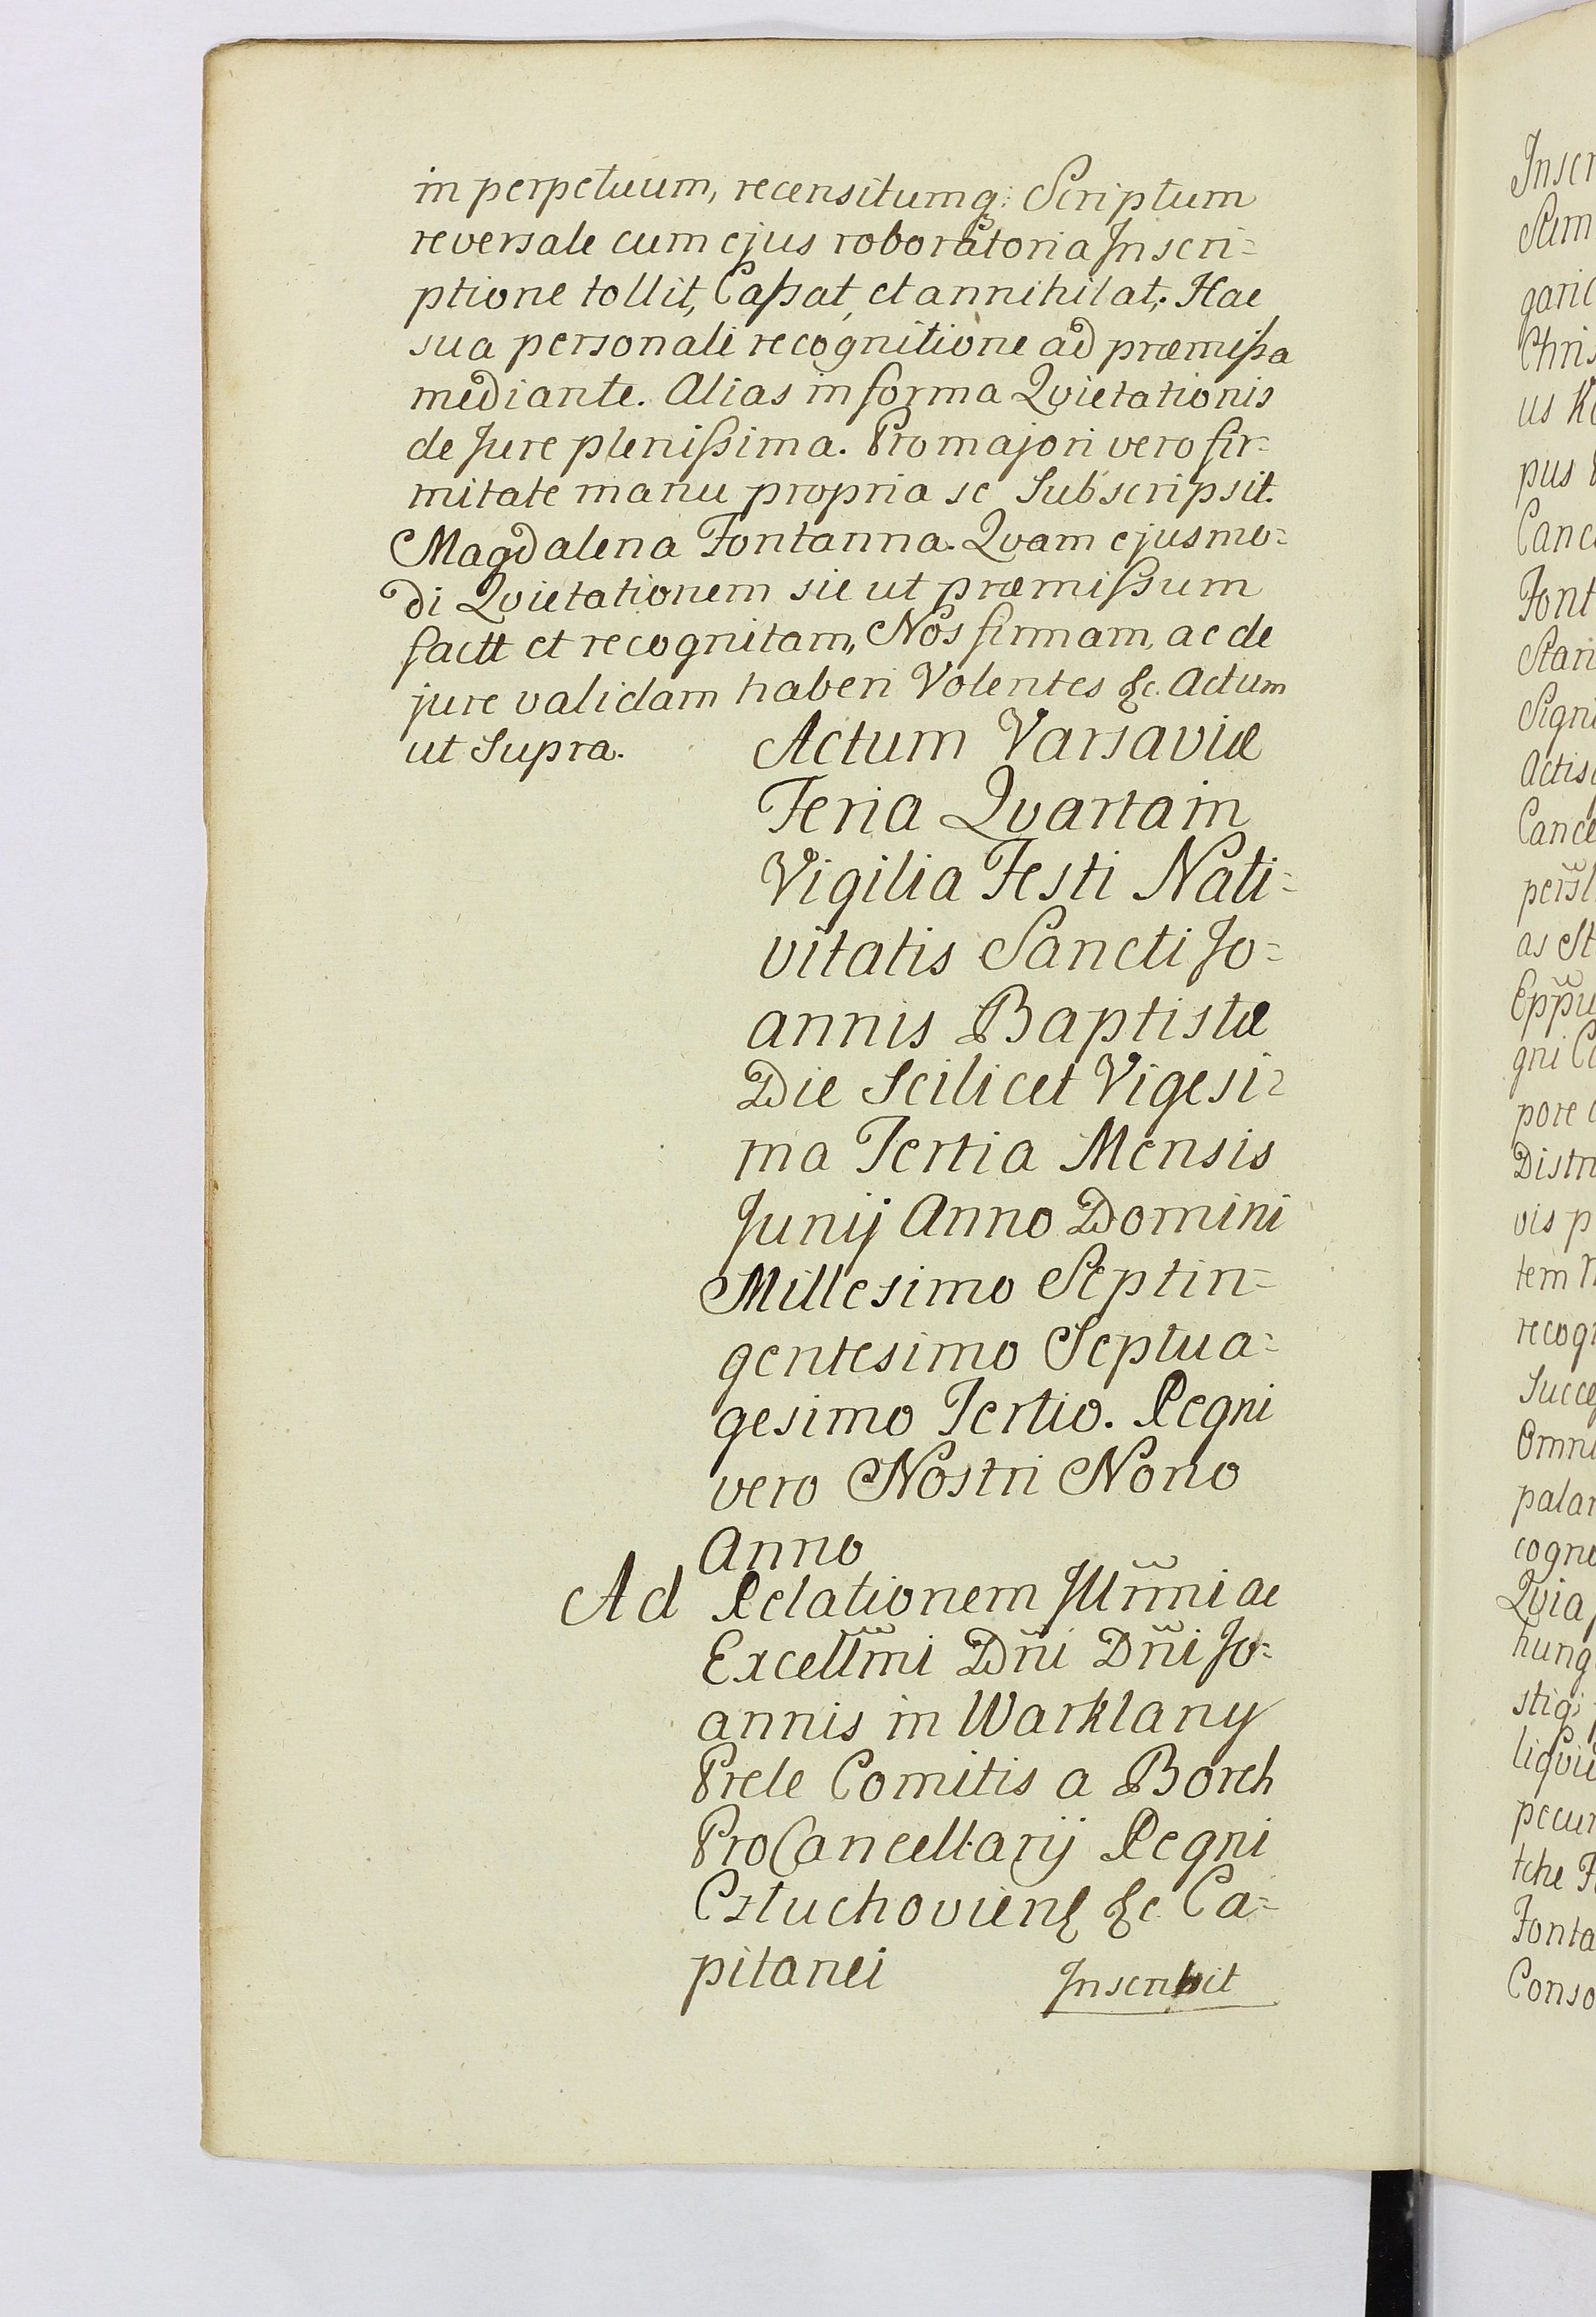 in perpetuum, recensitumq: Scriptum
reversale cum ejus roboratoria Inscri=
ptione tollit, Caßat, et annihilat,. Hac
sua personali recognitione ad præmißa
mediante. Alias in forma Qvietationis
de Jure pleniſsima. Pro majori vero fir=
mitate manu propria se Subscripsit.
Magdalena Fontanna. Qvam ejusmo=
di Qvietationem sic ut præmiſsum
factt et recognitam, Nos firmam, ac de
jure validam haberi Volentes &c. Actum
ut Supra.
Actum Varsaviæ
Feria Qvarta in
Vigilia Festi Nati=
vitatis Sancti Jo=
annis Baptistæ
Die Scilicet Vigesi=
ma Tertia Mensis
Junij Anno Domini
Millesimo Septin=
gentesimo Septua=
gesimo Tertio. Regni
vero Nostri Nono
Anno
Ad Relationem Jllm̃i ac
Excellm̃i Dñi Dñi Jo=
annis in Warklany
Prele Comitis a Borch
ProCancellarij Regni
Cztuchovienẜ &c. Ca=
pitanei
Inscribit
Inscr
Sum
garic
Chris
us K
pus
Canc
Font
Stari
Sign
Actis
Cance
as St
gni C
pore
Distri
vis p
tem N
recog
Succe
Omni
palar
cogno
Qvia
hung
stiq;
liqvi
pecur
tche F
Fonta
Conso